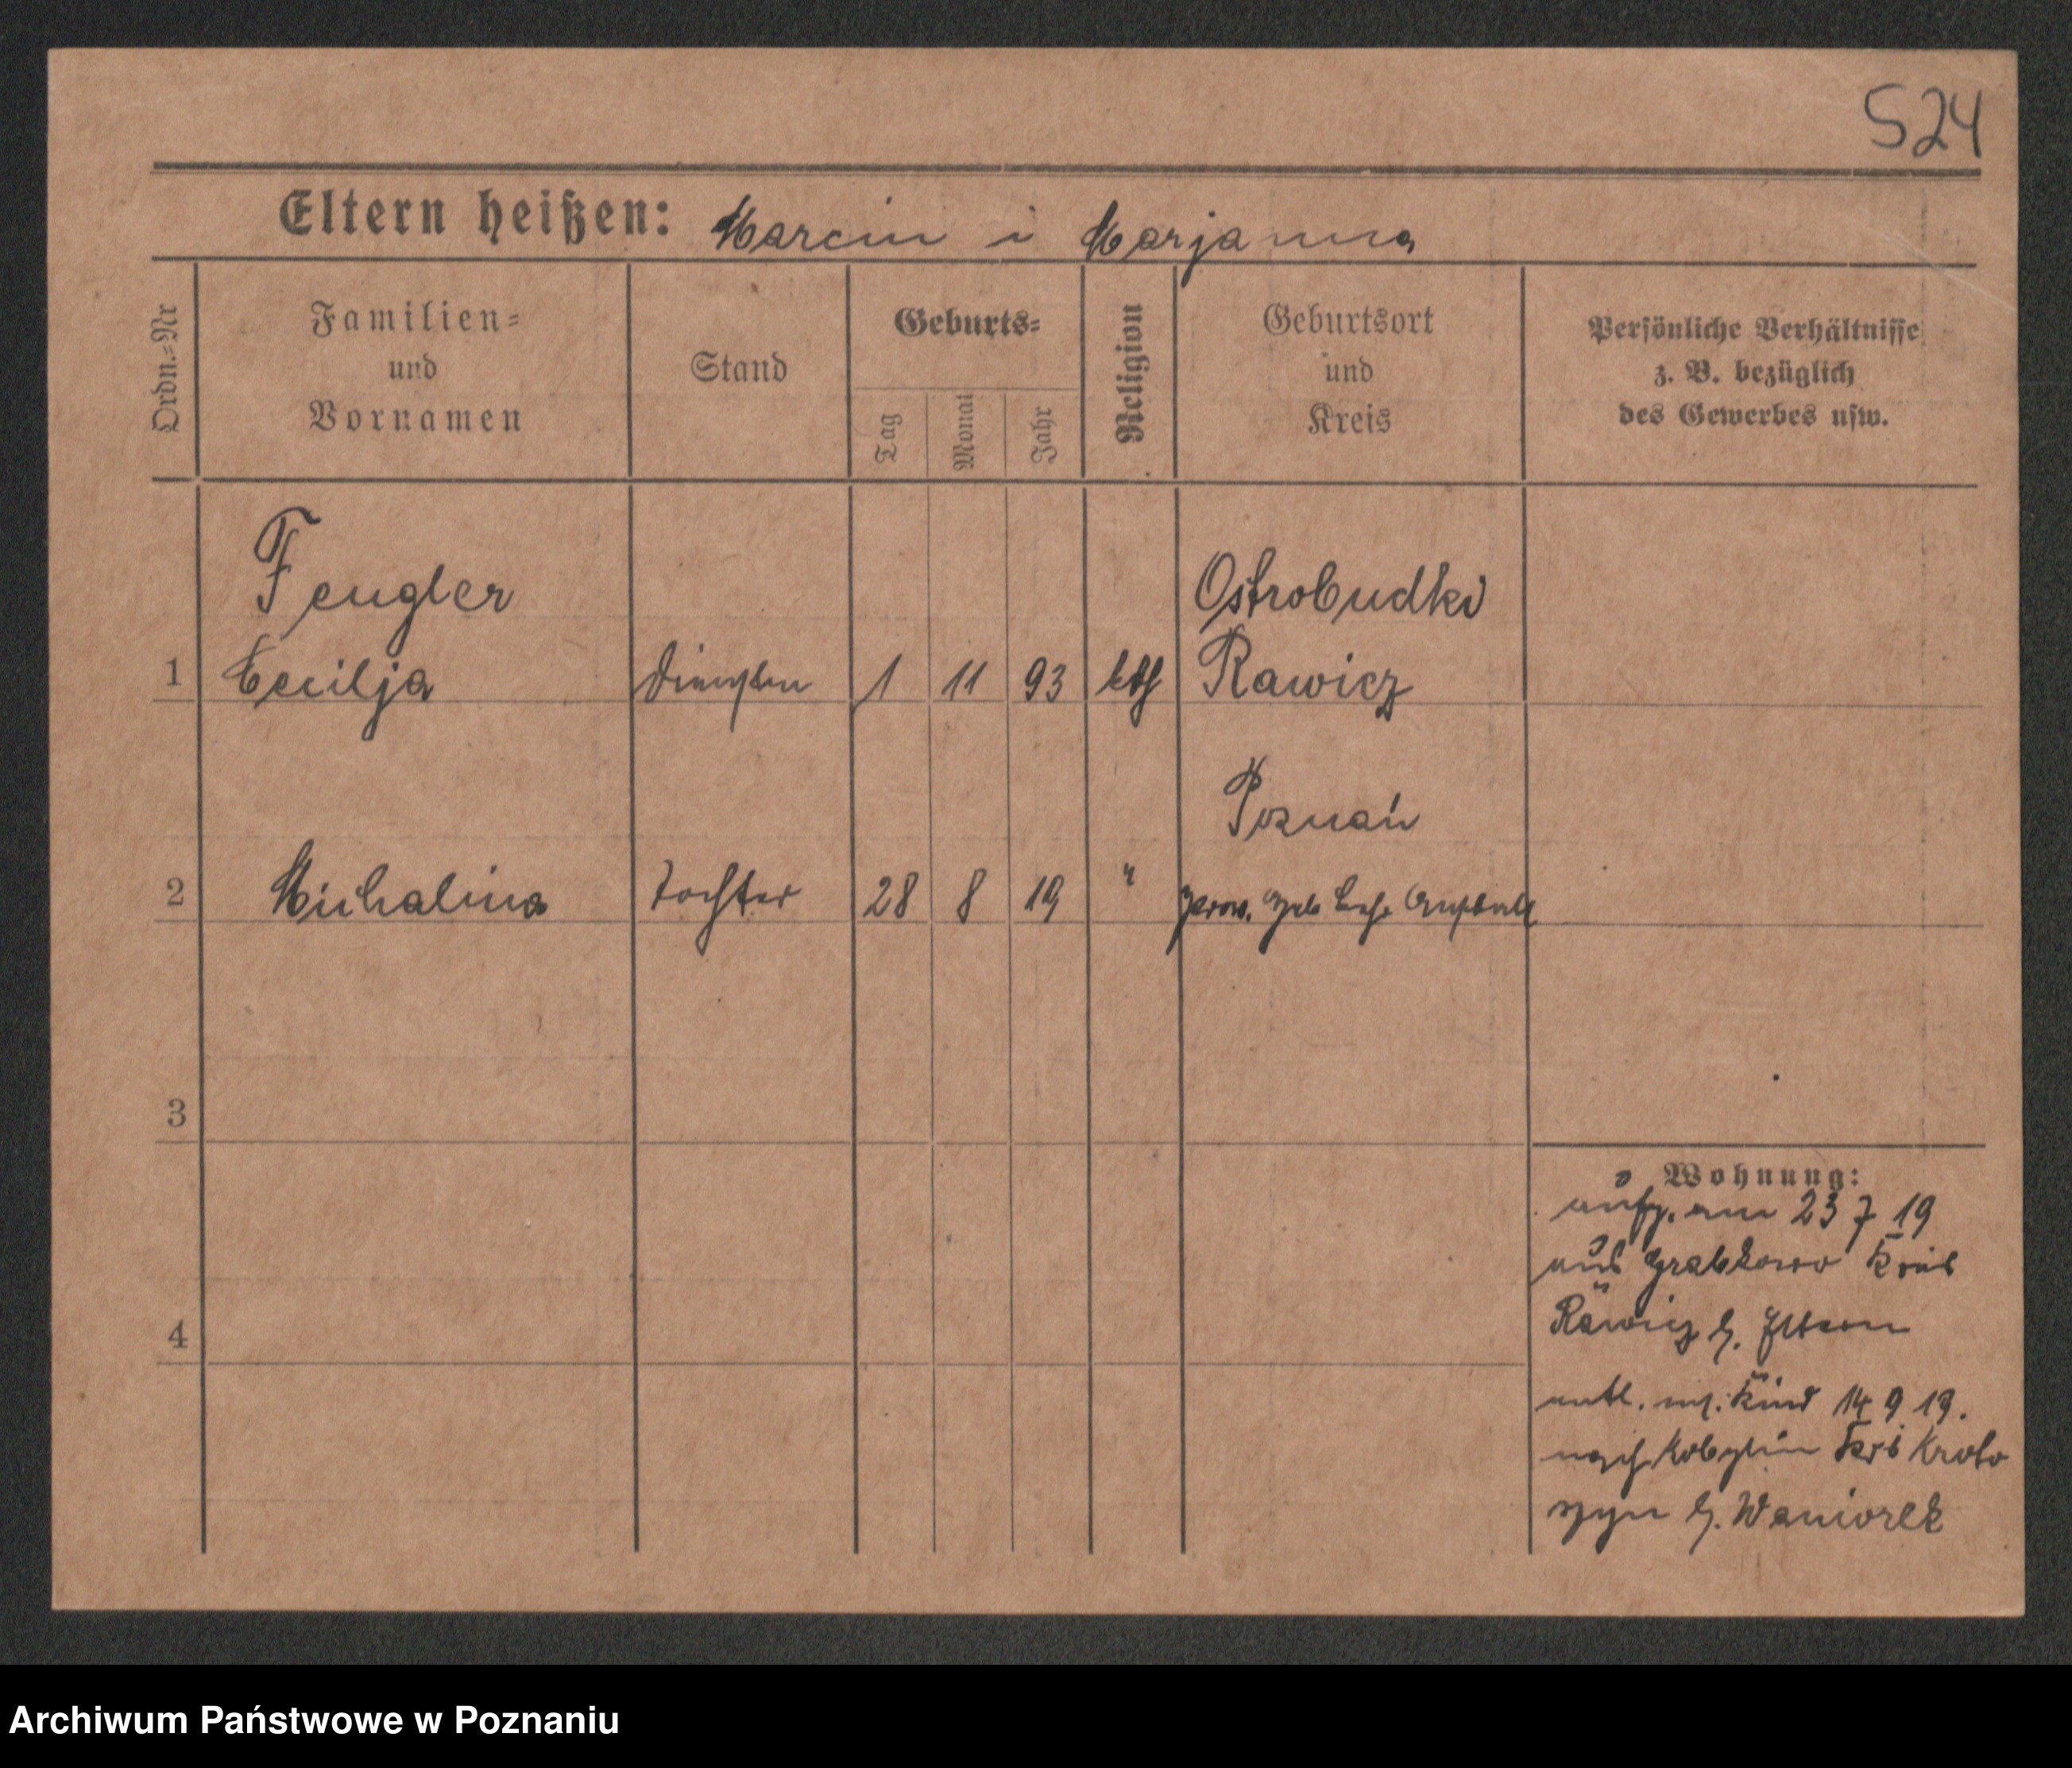 524
Eltern heißen: Marcin i Marjanna
Ordn.=Nr
Familien=
und
Vornamen
Stand
Geburts=
Tag
Monat
Jahr
Religion
Geburtsort
und
Kreis
Persönliche Verhältnisse
z. B. bezüglich
des Gewerbes usw.
Fengler
Ostrobudki
1 Cecilja 1 11 93 kth Rawicz
Poznań
2 Michalina Tochter 28 8 19 " Prow.
3
4
Wohnung:
am 23 7 19
aus Grabkowo Kreis
Rawicz b. Eltern
Kind 14 9 19.
nach Kobylin Krs Kroto
szyn b. Waniorek
Archiwum Państwowe w Poznaniu